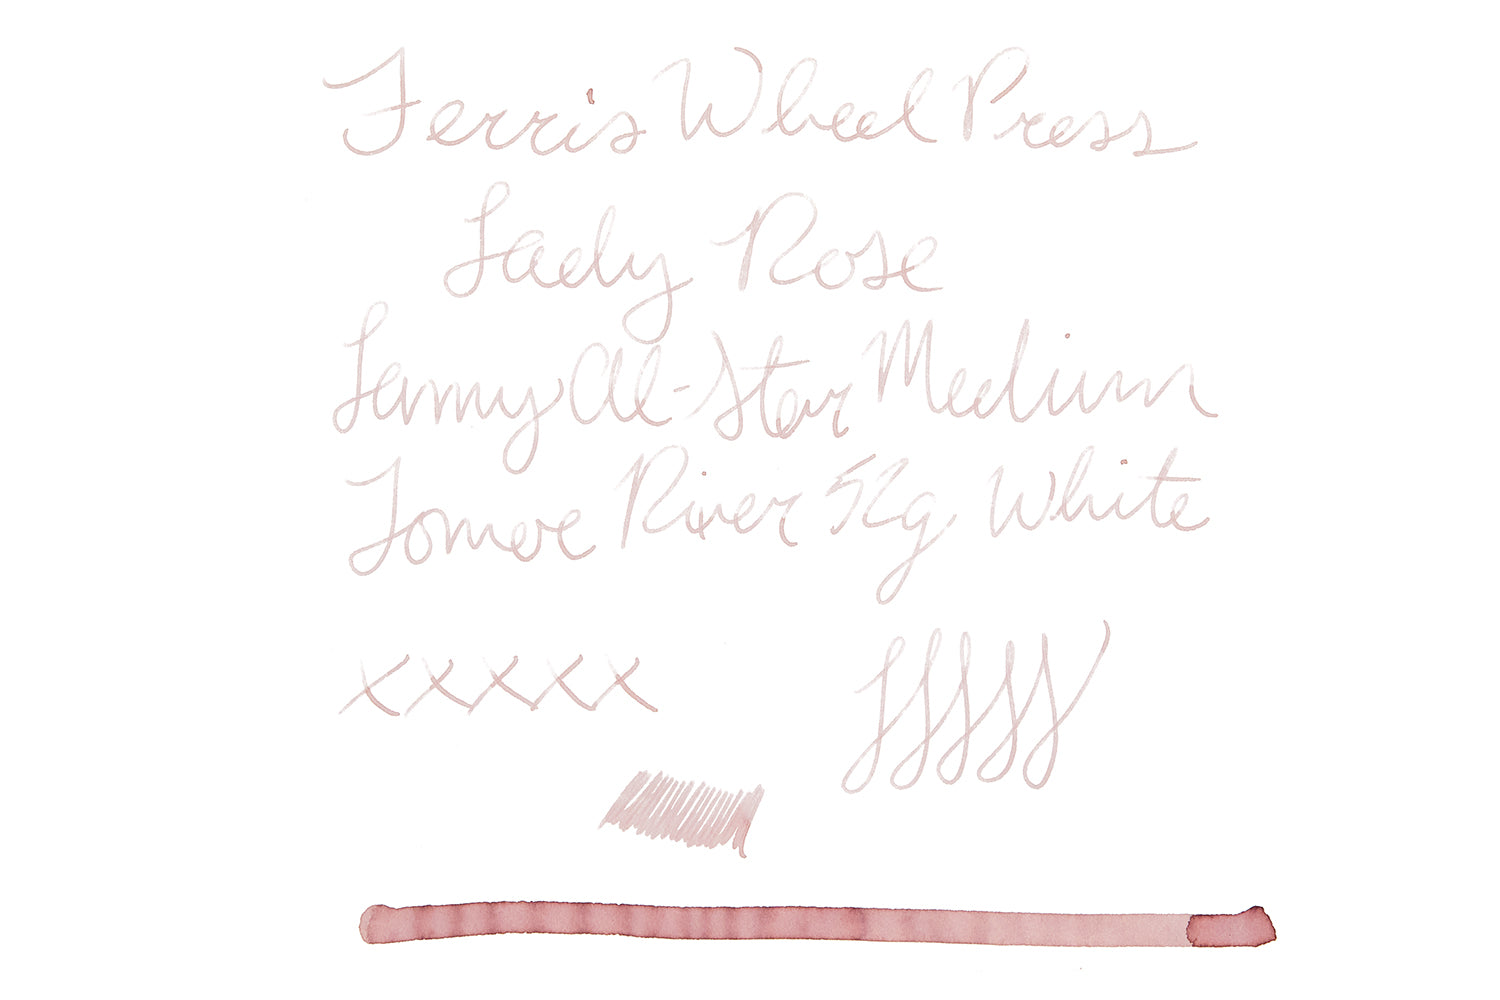 Ferris Wheel Press
Lady Rose
Lamy Al-Star Medium
Tomoe River 52g White
xxxxx